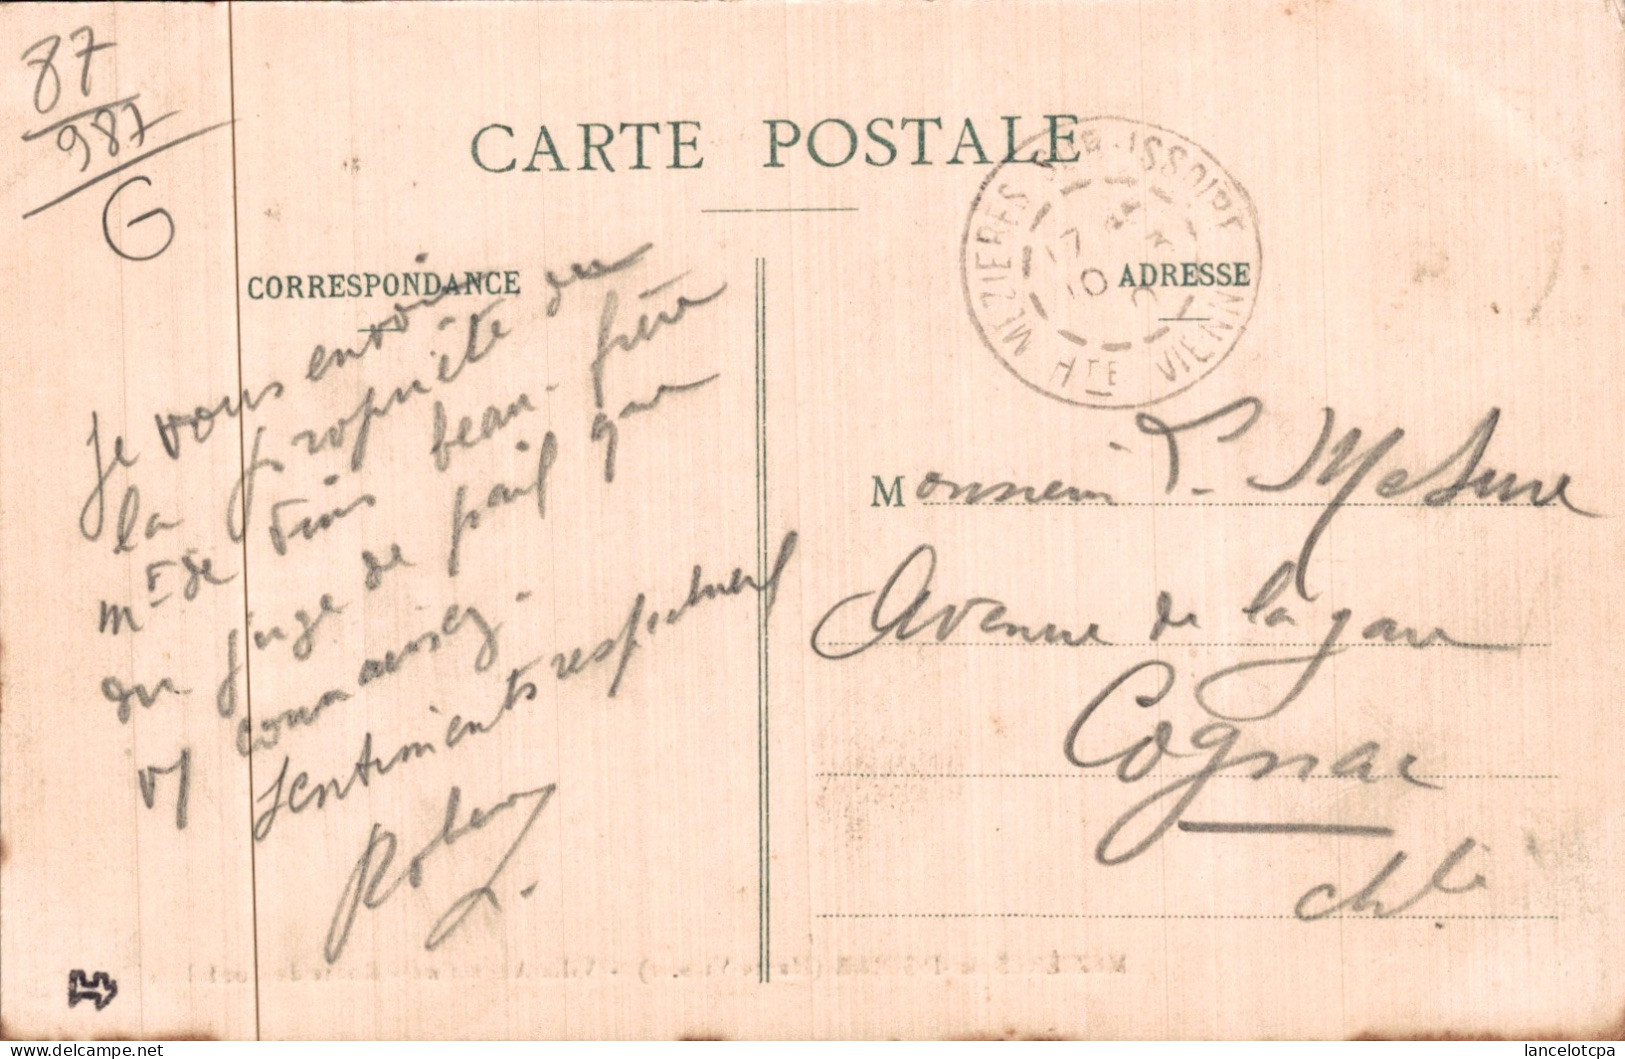 87
987
G
CARTE POSTALE
MEZIERES SUR ISSOIRE
Hte VIENNE
17
10
CORRESPONDANCE
ADRESSE
Je vous envoie
la propriété du
Mr de beau-frère
du juge de paix que
vs connaissez.
Sentiments respectueux
Monsieur
Avenue de la gare
Cognac
chte
lancelotcpa